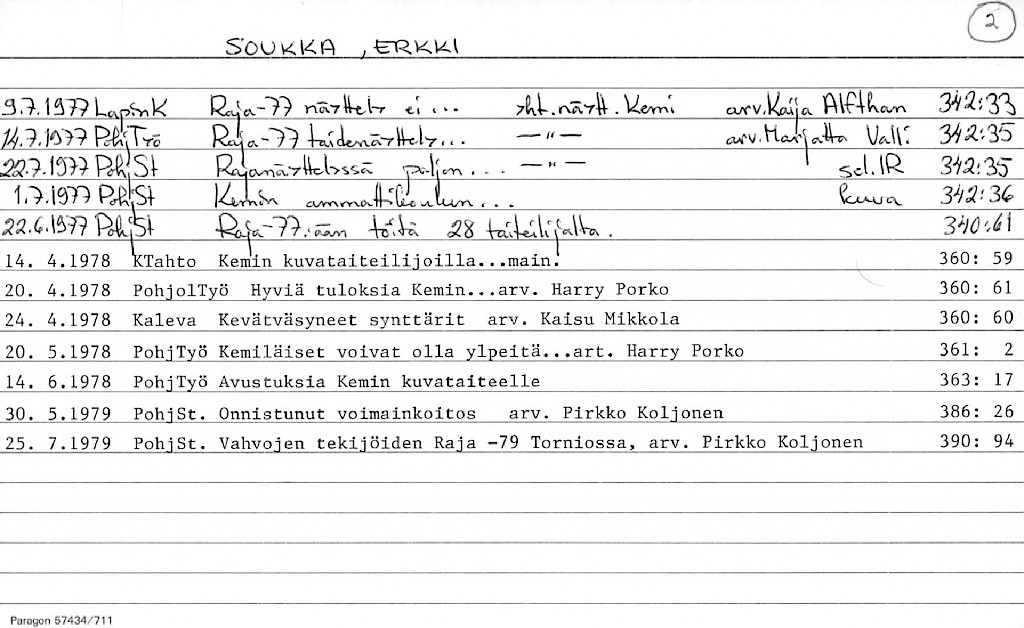 2
SOUKKA, ERKKI
9.7.1977 LapinK Raja-77 näyttely ei... yht.näytt. Kemi arv. Kaija Alfthan 342:33
14.7.1977 PohjTyö Raja-77 taidenäyttely... —"— arv. Marjatta Valli 342:35
22.7.1977 PohjSt Rajanäyttelyssä paljon... —"— sel. IR 342:35
1.7.1977 PohjSt Kemin ammattikoulun... kuva 342:36
22.6.1977 PohjSt Raja-77:ään töitä 28 taiteilijalta. 340:61
14. 4.1978 KTahto Kemin kuvataiteilijoilla...main. 360: 59
20. 4.1978 PohjolTyö Hyviä tuloksia Kemin...arv. Harry Porko 360: 61
24. 4.1978 Kaleva Kevätväsyneet synttärit arv. Kaisu Mikkola 360: 60
20. 5.1978 PohjTyö Kemiläiset voivat olla ylpeitä...art. Harry Porko 361: 2
14. 6.1978 PohjTyö Avustuksia Kemin kuvataiteelle 363: 17
30. 5.1979 PohjSt. Onnistunut voimainkoitos arv. Pirkko Koljonen 386: 26
25. 7.1979 PohjSt. Vahvojen tekijöiden Raja -79 Torniossa, arv. Pirkko Koljonen 390: 94
Paragon 57434/711